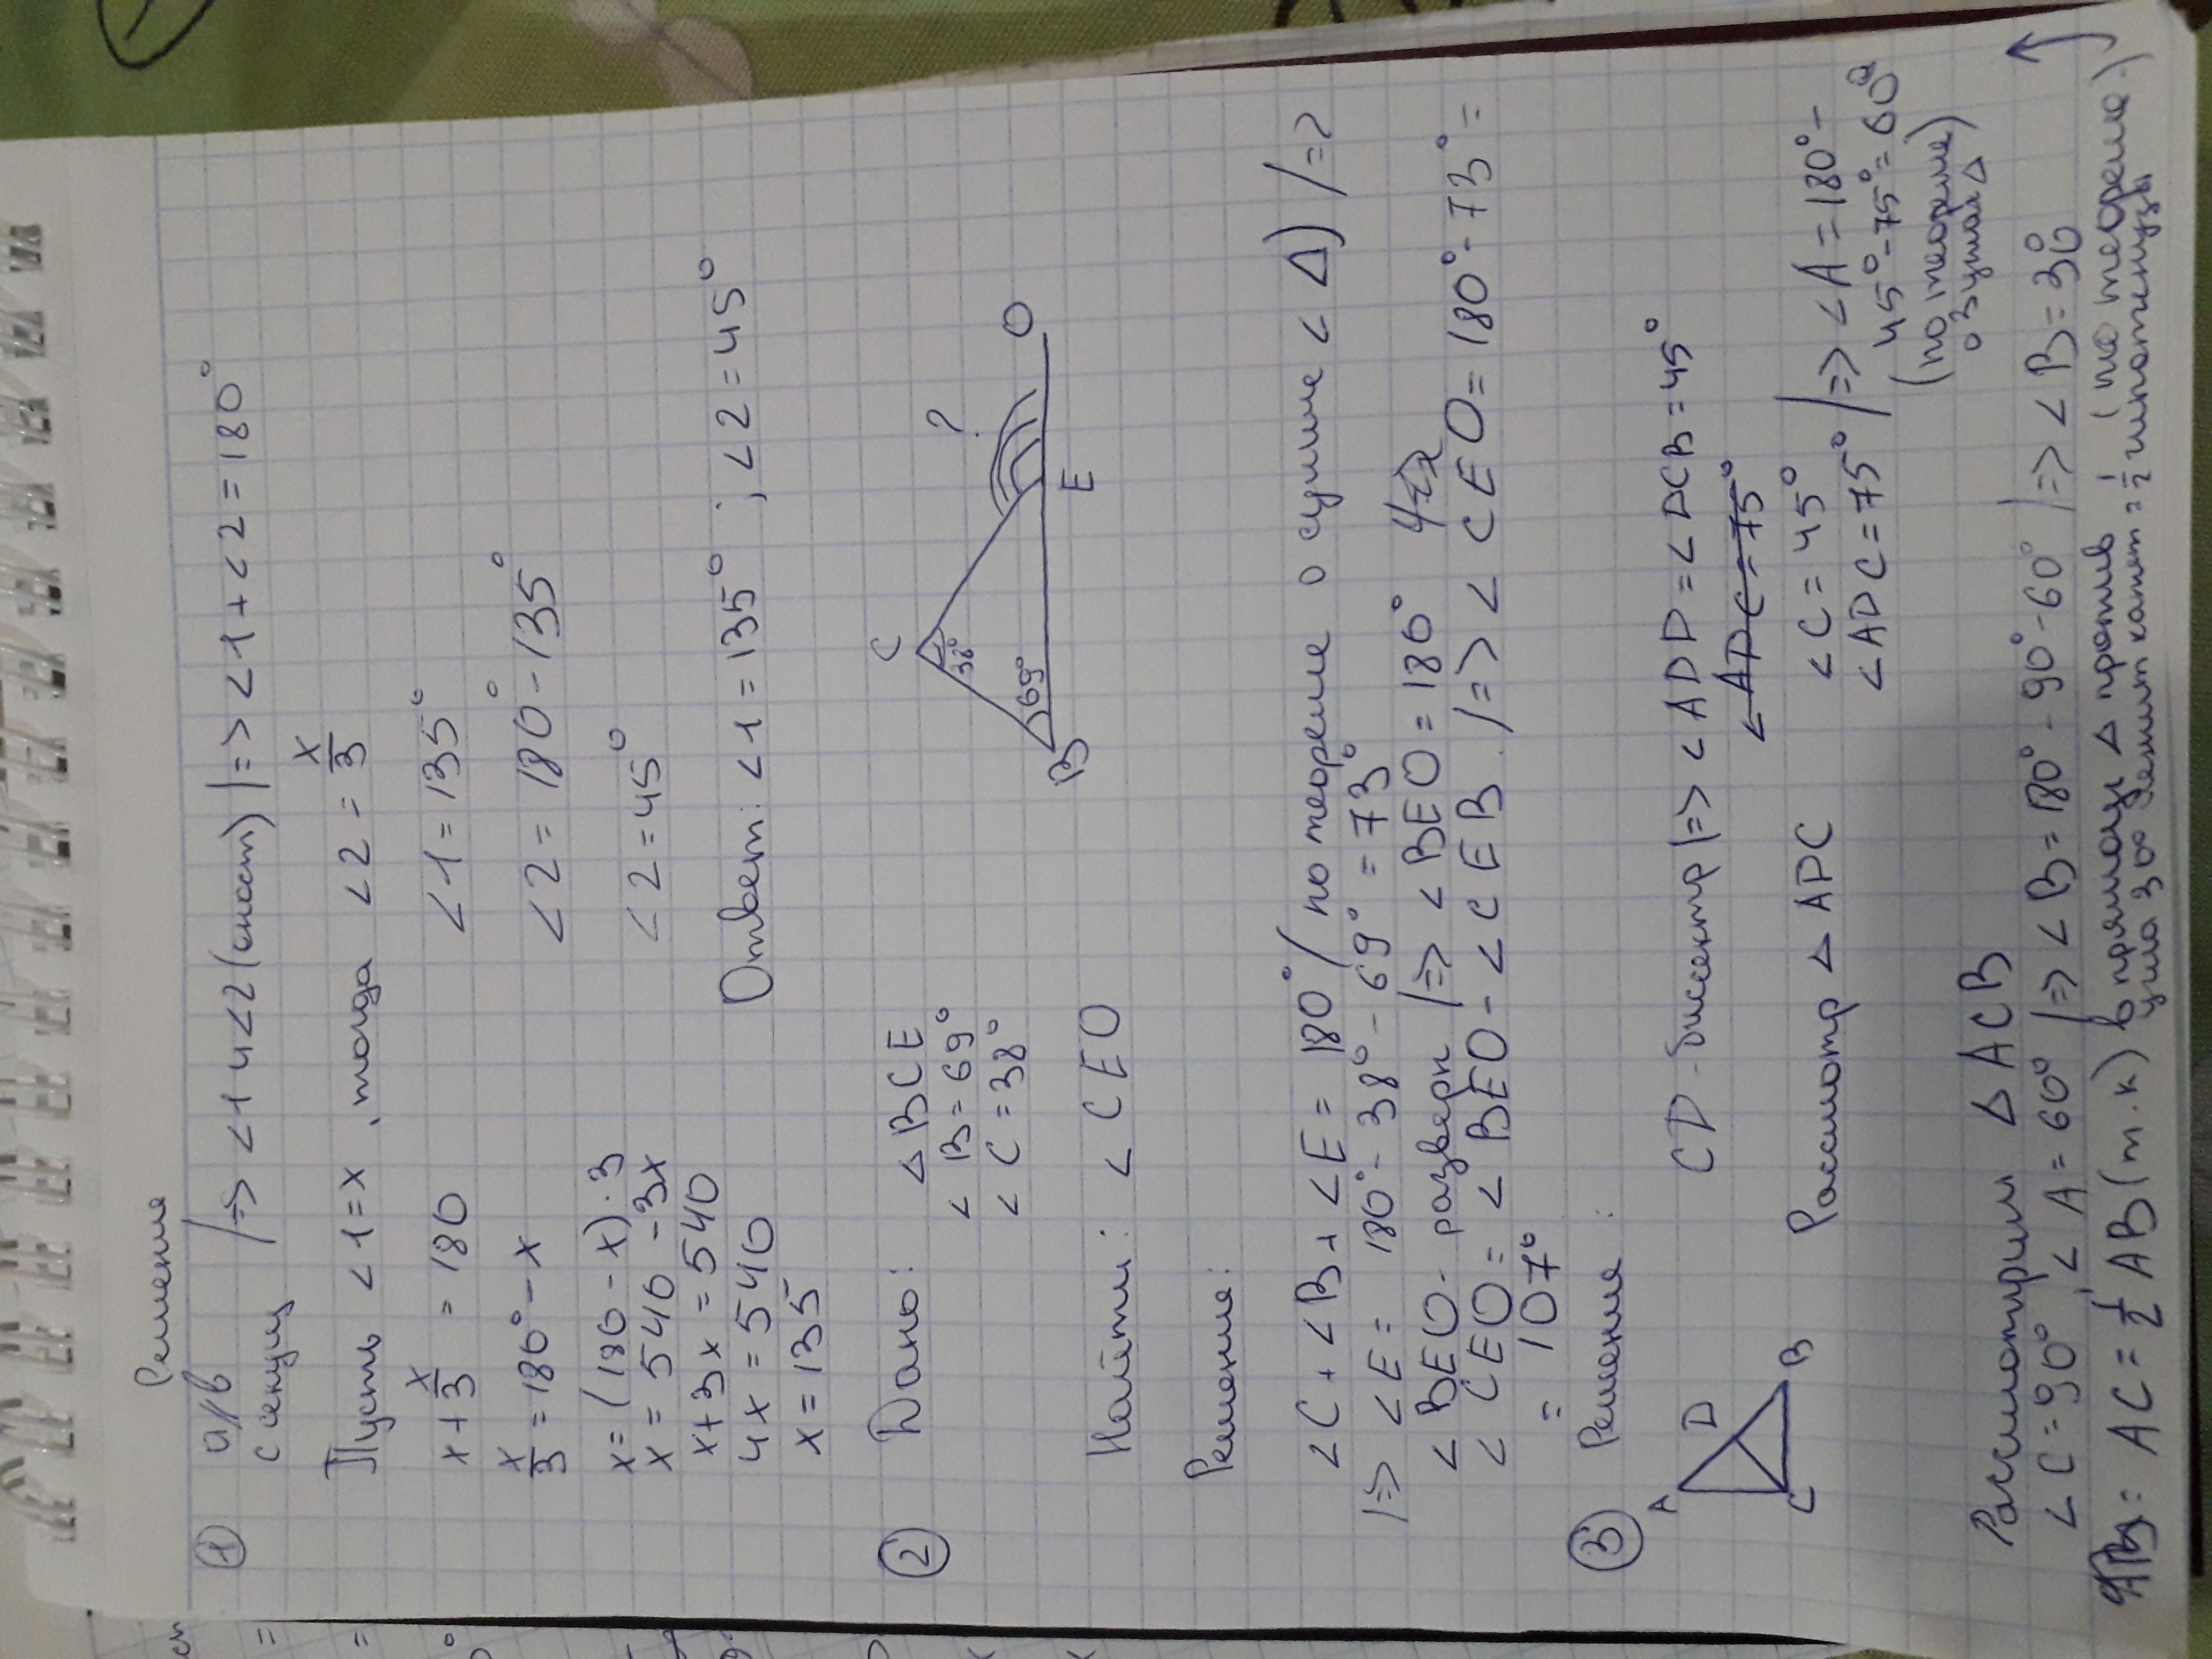 Решение
① a//b
с секущ |=> <1 и <2 (одност) |=> <1+<2=180°
Пусть <1=x, тогда <2 = x/3
x + x/3 = 180
<1=135°
x/3 = 180° - x
<2 = 180° - 135°
x=(180-x)·3
<2=45°
x=540-3x
x+3x=540
Ответ: <1=135° ; <2=45°
4x=540
x=135
② Дано: △BCE
<B=69°
<C=38°
Найти: <CEO
C
38°
69°
B
E
O
?
Решение:
<C+<B+<E=180° (по теореме о сумме <△) |=>
|=> <E= 180°-38°-69°=73°
<BEO-разверн |=> <BEO=180°
<CEO= <BEO-<CEB |=> <CEO=180°-73°=
= 107°
③ Решение:
A
D
C
B
CD-биссектр |=> <ADD=<DCB=45°
<ADC=75°
Рассмотр △ADC
<C=45°
<ADC=75° |=> <A=180°-
45°-75°=60°
(по теореме
о Σ углах △
Рассмотрим △ACB
<C=90°, <A=60° |=> <B=180°-90°-60° |=> <B=30°
AC=1/2 AB (т.к) в прямоуг △ против
угла 30° лежит катет = 1/2 гипотенузы
(по теореме)